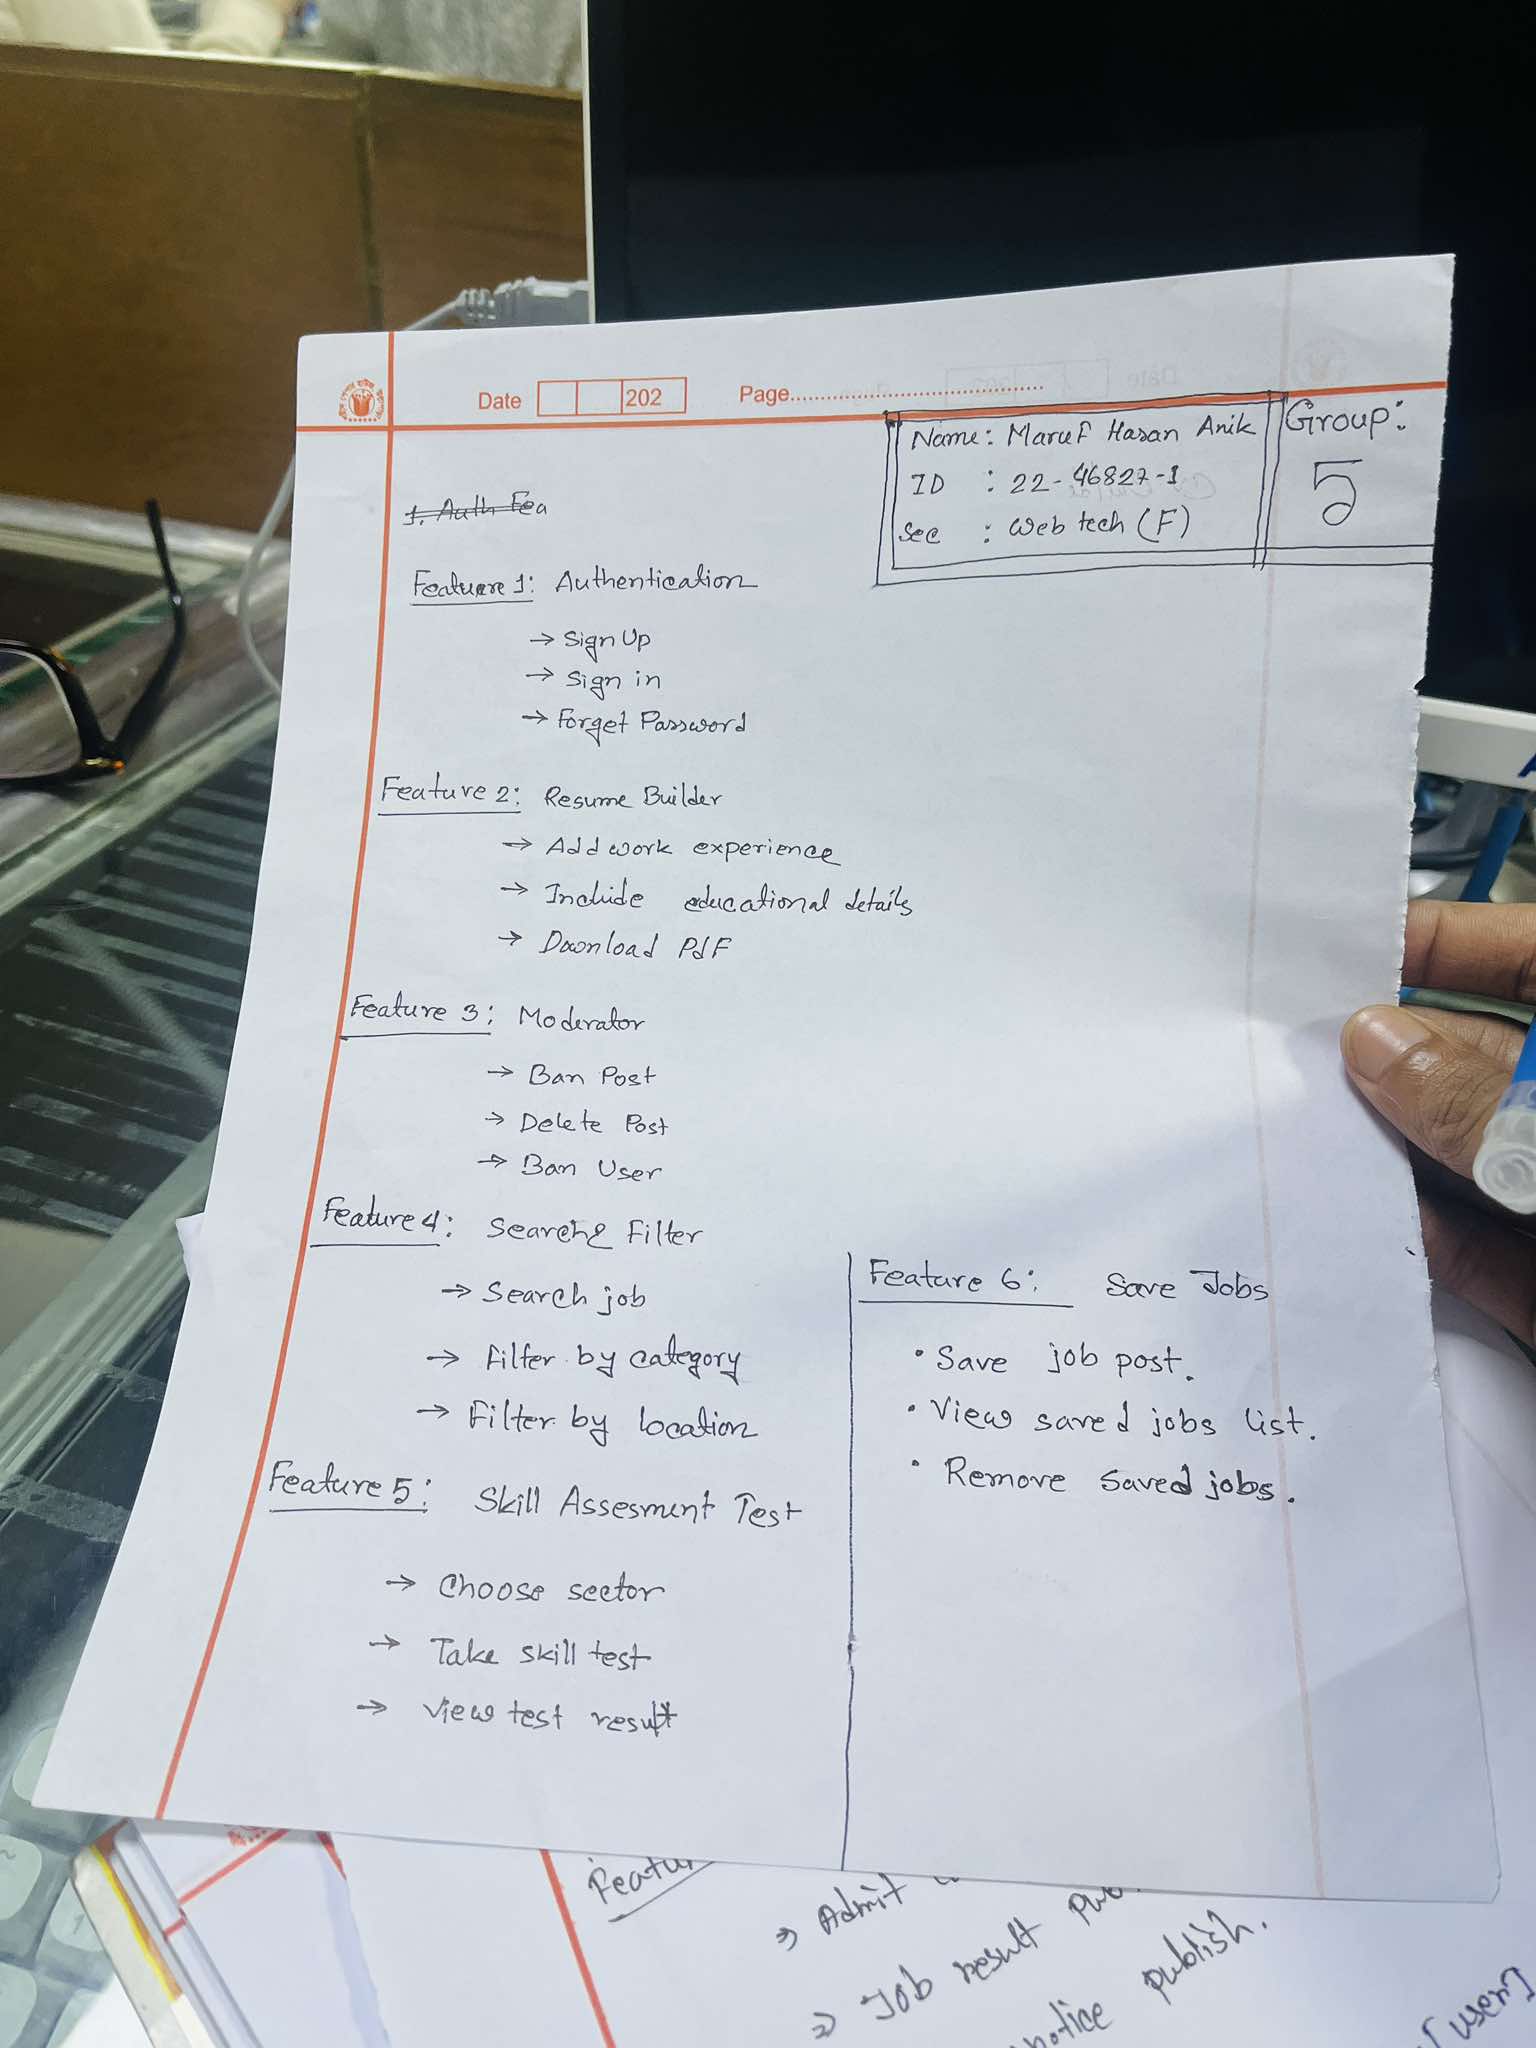 Date 202 Page
Name: Maruf Hasan Anik
ID : 22-46827-1
Sec : Web tech (F)
Group:
5
1. Auth Fea
Featuere 1: Authentication
→ Sign Up
→ Sign in
→ Forget Password
Feature 2: Resume Builder
→ Add work experience
→ Include educational details
→ Download PdF
Feature 3: Moderator
→ Ban Post
→ Delete Post
→ Ban User
Feature 4: Search & Filter
→ Search job
→ Filter by category
→ Filter by location
Feature 5: Skill Assesment Test
→ Choose sector
→ Take skill test
→ View test result
Feature 6: Save Jobs
• Save job post.
• View saved jobs list.
• Remove saved jobs.
Featur
→ Admit
→ Job result
notice publish.
[user]